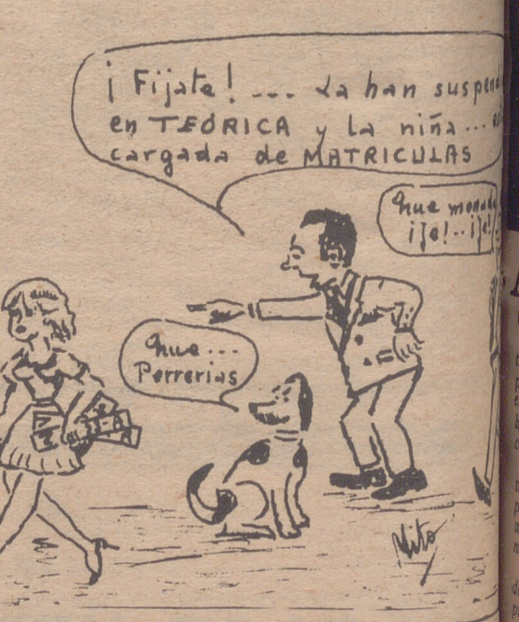 ¡Fijate!... La han suspend
en TEÓRICA y la niña... es
cargada de MATRICULAS
Que monada
¡Je!..¡Je!
Que...
Perrerias
Mito